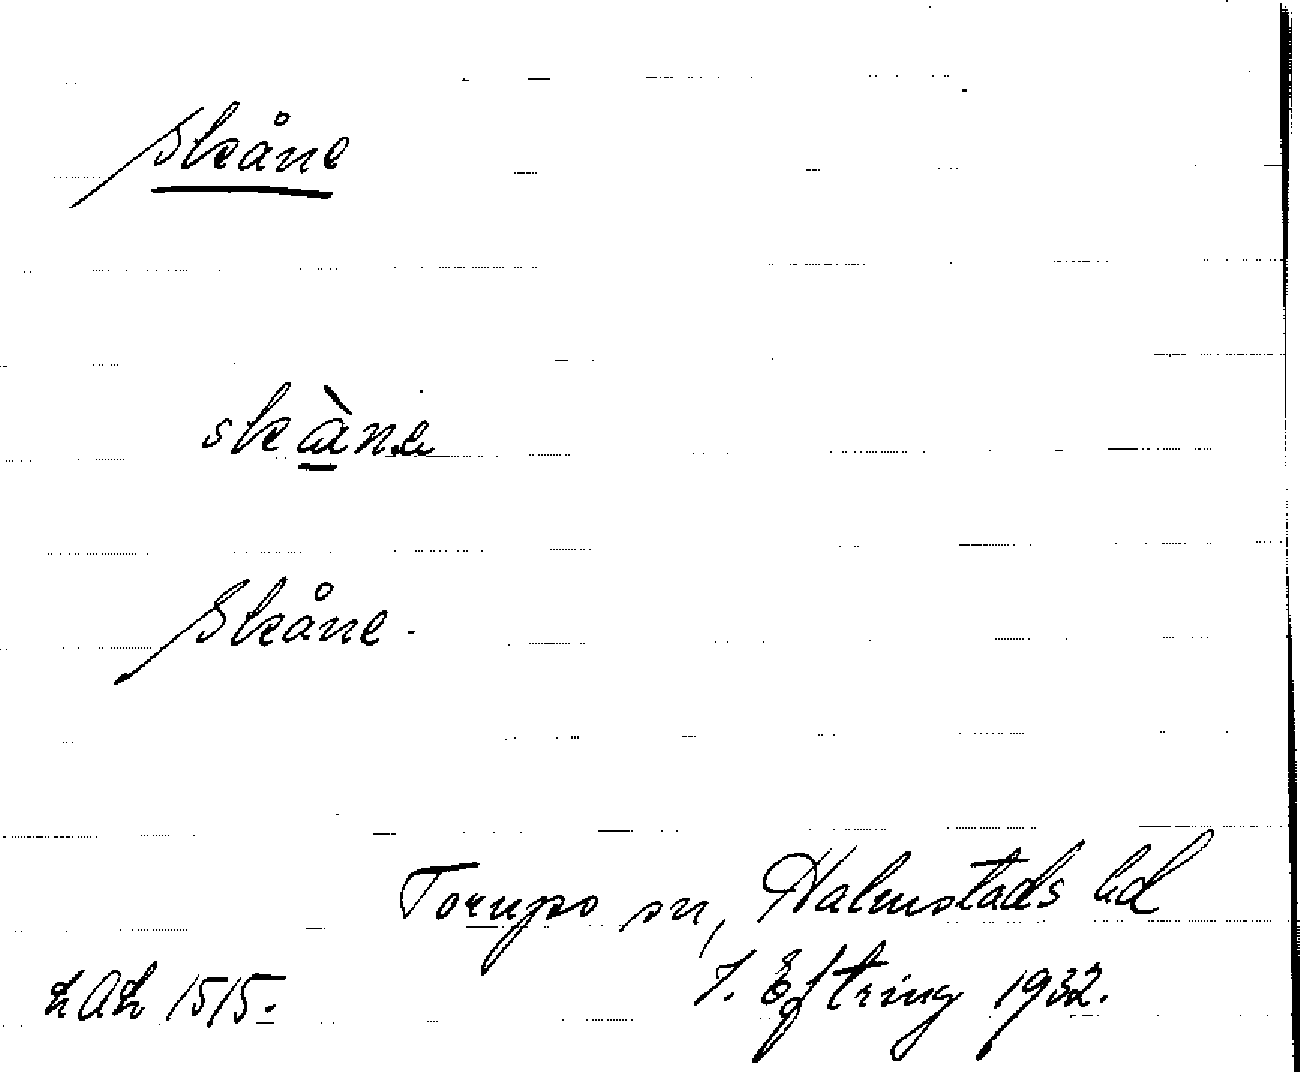 Skåne
skàne
Skåne.
Torups sn, Halmstads hd
LAL 1515. J. Eftring 1932.